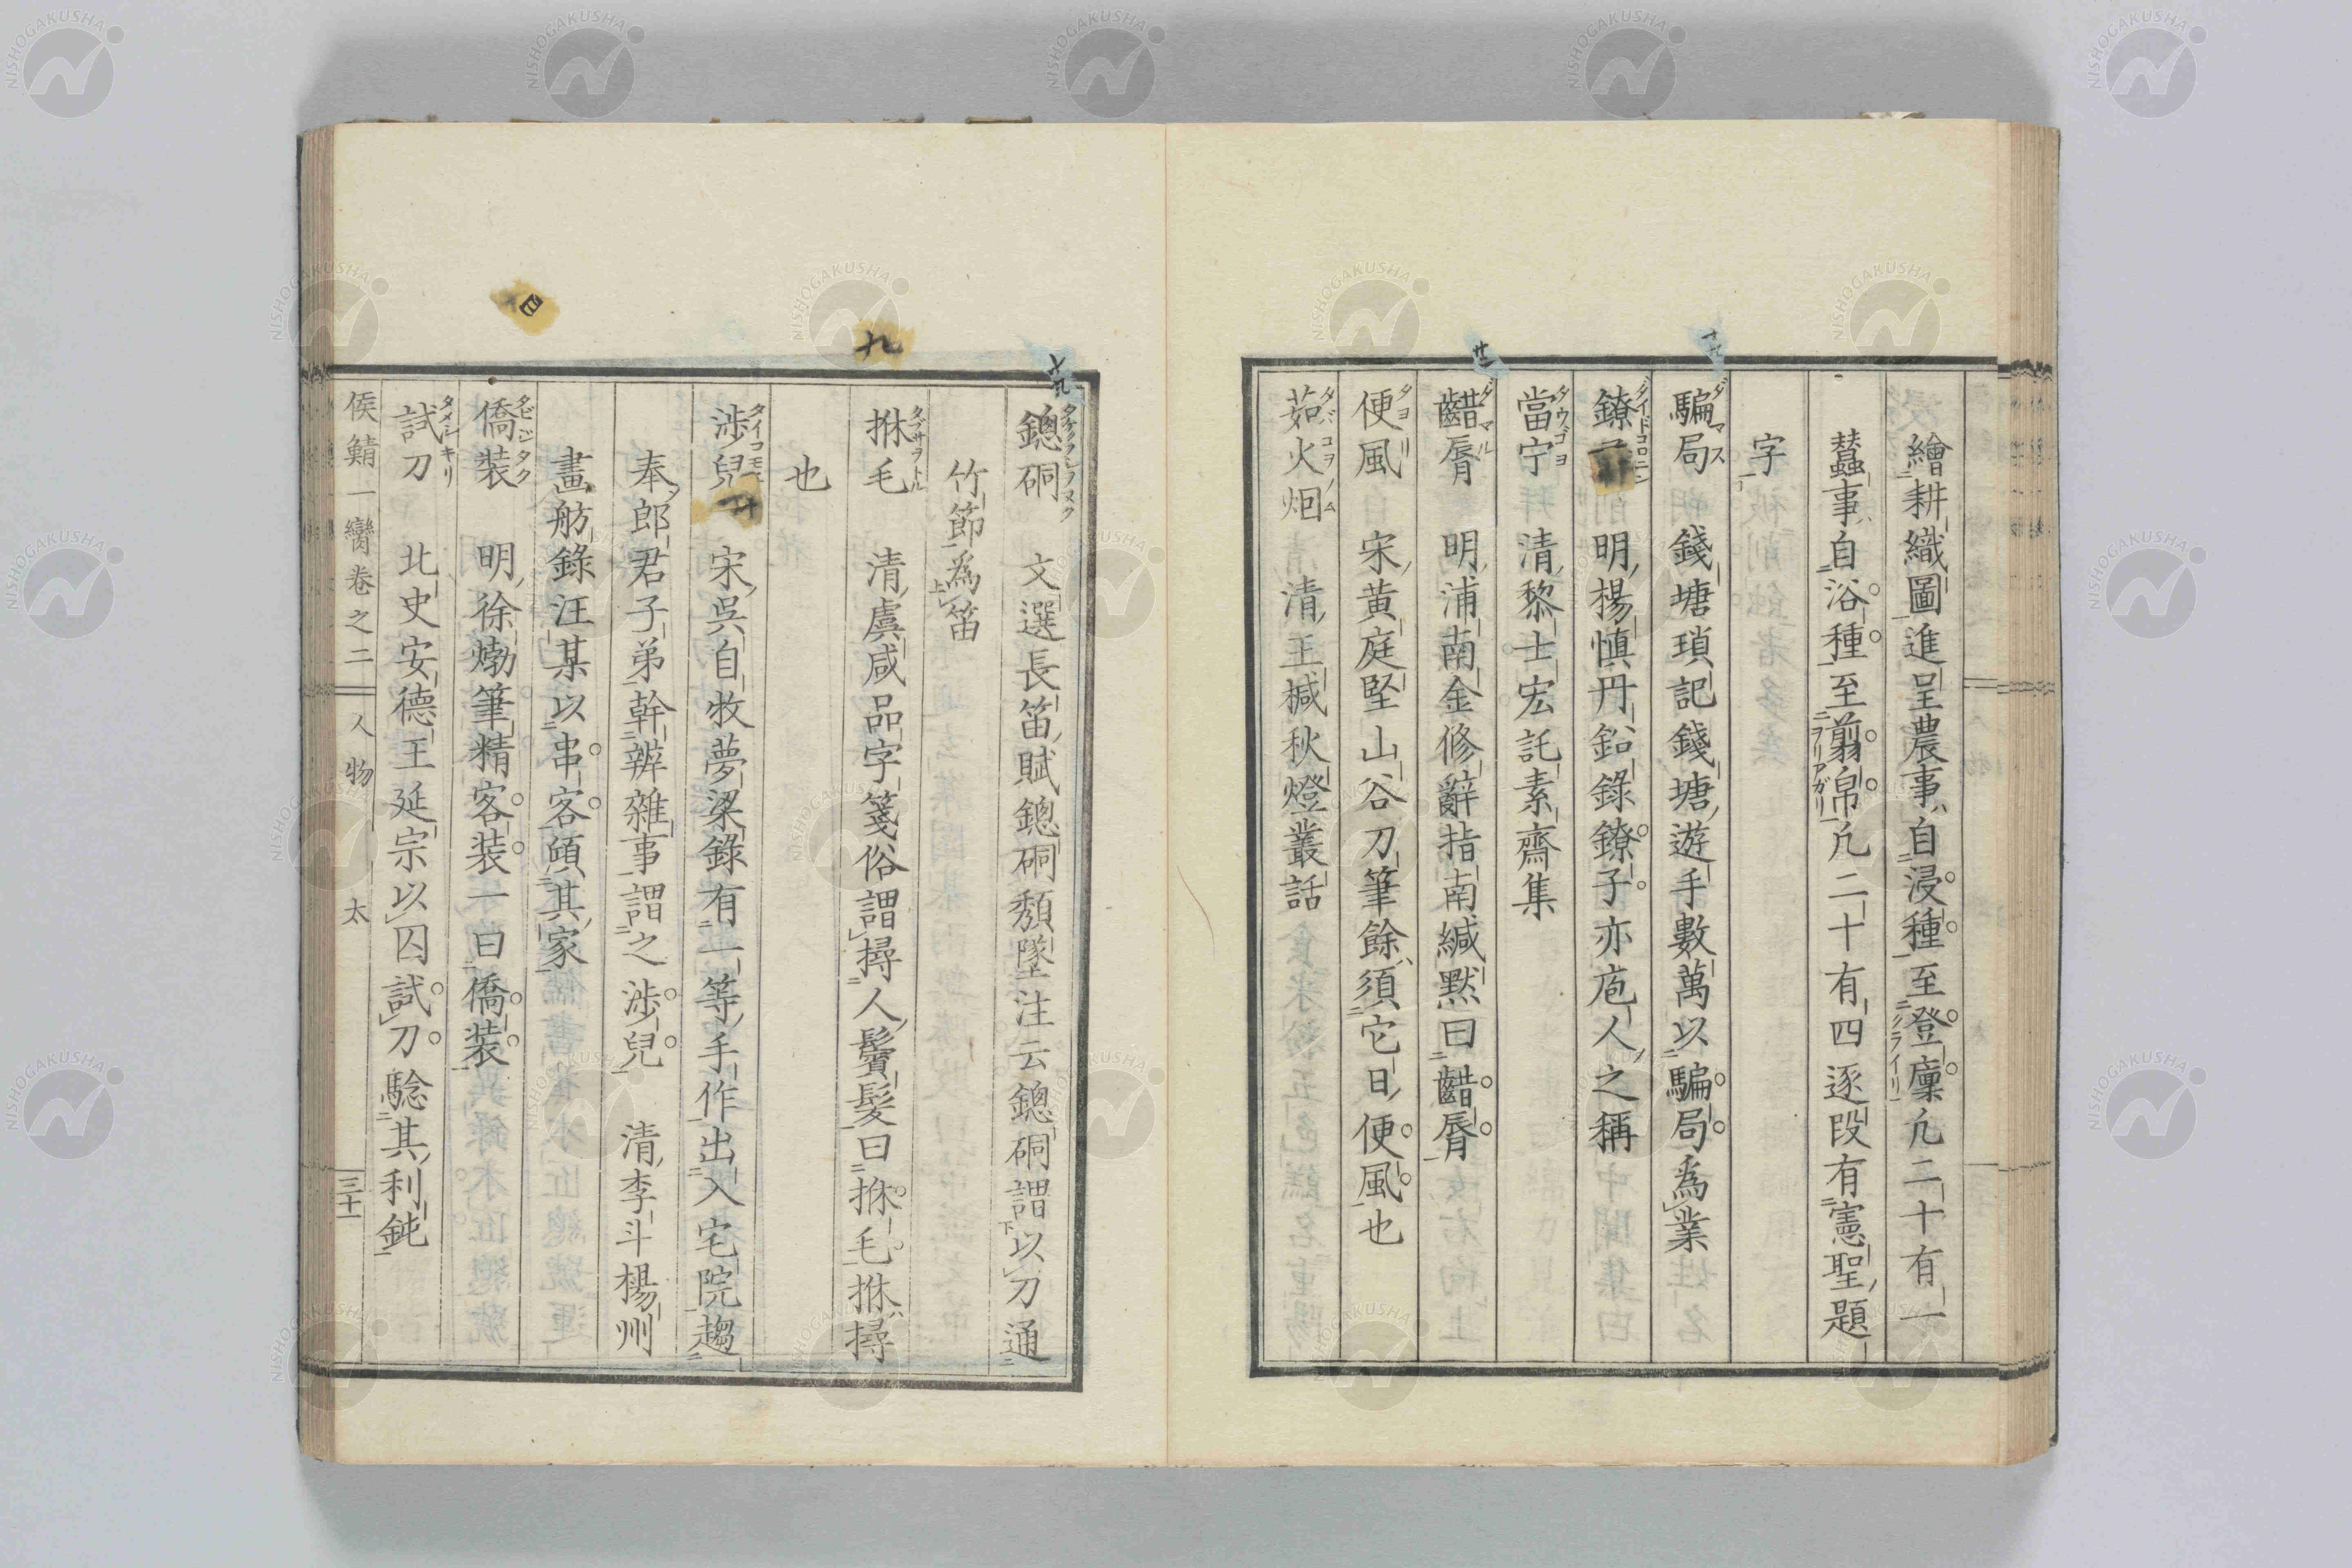 繪耕織圖進呈農事自浸種至登廩凢二十有一
蠶事自浴種至翦帛凢二十有四逐段有憲聖題
字
騙局 錢塘瑣記錢塘遊手數萬以騙局為業
鐐子 明楊慎丹鉛錄鐐子亦庖人之稱
當宁 清黎士宏託素齋集
齰脣 明浦南金修辭指南緘默曰齰脣
便風 宋黄庭堅山谷刀筆餘須它日便風也
茹火烟 清王椷秋燈叢話
鏓硐 文選長笛賦鏓硐隤墜注云鏓硐謂以刀通
竹節為笛
揪毛 清虞咸品字箋俗謂撏人鬢髮曰揪毛揪撏
也
涉兒 宋吳自牧夢梁錄有一等手作出入宅院趨
奉郎君子弟幹辨雜事謂之涉兒 清李斗楊州
畫舫錄汪某以串客傾其家
僑装 明徐𤊹筆精客装一曰僑装
試刀 北史安德王延宗以囚試刀騐其利鈍
侯鯖一臠卷之二 人物 太 三十一
NISHOGAKUSHA